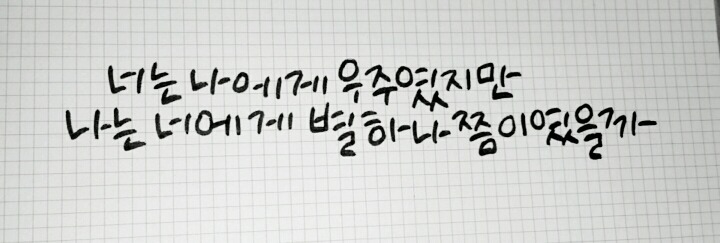 너는 나에게 우주였지만
나는 너에게 별 하나쯤이였을까